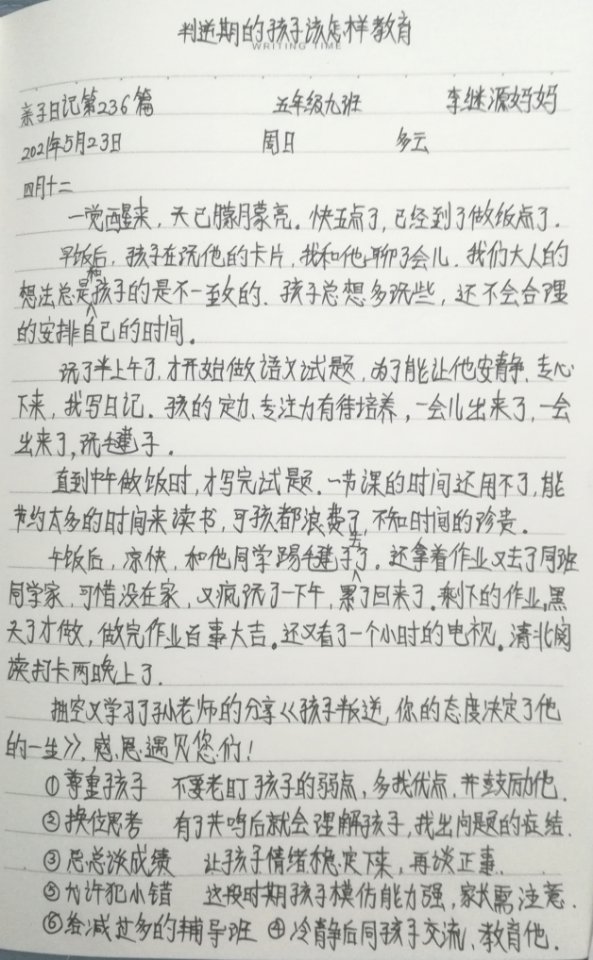 判逆期的孩子该怎样教育
WRITING TIME
亲子日记第236篇 五年级九班 李继源妈妈
2021年5月23日 周日 多云
四月十二
一觉醒来，天已朦月蒙亮。快五点了，已经到了做饭点了。
早饭后，孩子在玩他的卡片，我和他聊了会儿．我们大人的
想法总是和孩子的是不一致的．孩子总想多玩些，还不会合理
的安排自己的时间。
玩了半上午了，才开始做语文试题，为了能让他安静、专心
下来，我写日记．孩的定力、专注力有待培养，一会儿出来了，一会
出来了，玩毽子．
直到中午做饭时，才写完试题．一节课的时间还用不了，能
节约太多的时间来读书，可孩都浪费了，不知时间的珍贵。
午饭后，凉快，和他同学踢毽子去了．还拿着作业又去了同班
同学家，可惜没在家，又疯玩了一下午，累了回来了。剩下的作业，黑
天了才做，做完作业百事大吉。还又看了一个小时的电视。清北阅
读打卡两晚上了．
抽空又学习了孙老师的分享《孩子叛逆，你的态度决定了他
的一生》．感恩遇见您们！
①尊重孩子 不要老盯孩子的弱点，多找优点，并鼓励他．
②换位思考 有了共鸣后就会理解孩子，找出问题的症结．
③忌总谈成绩 让孩子情绪稳定下来，再谈正事．
⑤允许犯小错 这段时期孩子模仿能力强，家长需注意．
⑥给减过多的辅导班 ④冷静后同孩子交流、教育他．